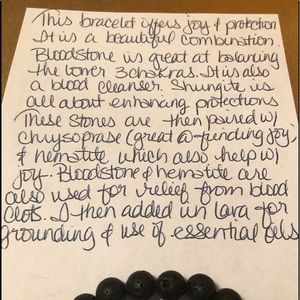 This bracelet offers joy & protection
It is a beautiful combination.
Bloodstone is great at balancing
the lower 3 chakras. It is also
a blood cleanser. Shungite is
all about enhancing protections
These stones are then paired w/
chrysoprase (great @ finding joy)
& hematite which also help w/
joy. Bloodstone & hematite are
also used for relief from blood
clots. I then added in lava for
grounding & use of essential oils